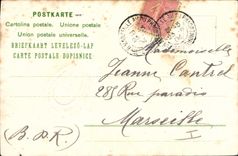 POSTKARTE
Cartolina postale. Unione postale
Union postale universelle.
BRIEFKAART LEVELEZŐ-LAP
CARTE POSTALE DOPISNICE
Mademoiselle
Jeanne Cantrel
285 Rue paradis
Marseille
(B.D.R)